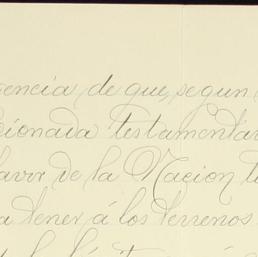 gencia de que, segun
cionada testamentar
favor de la Nacion t
a tener á los terrenos